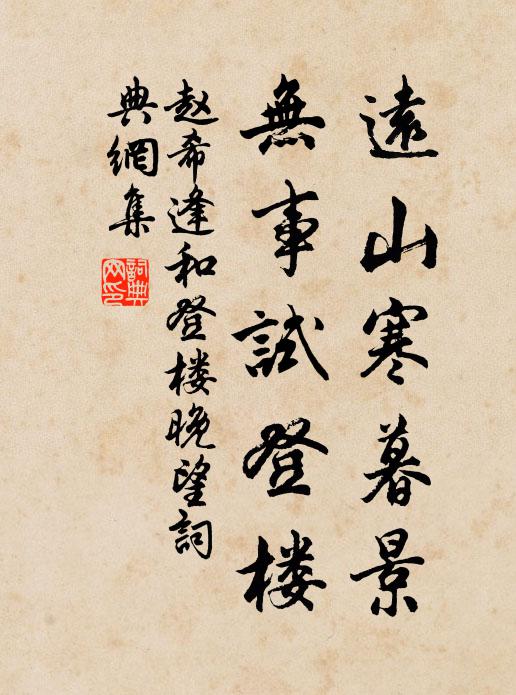 遠山寒暮景
無事試登楼
赵希逢和登楼晚望詞
典網集
詞典